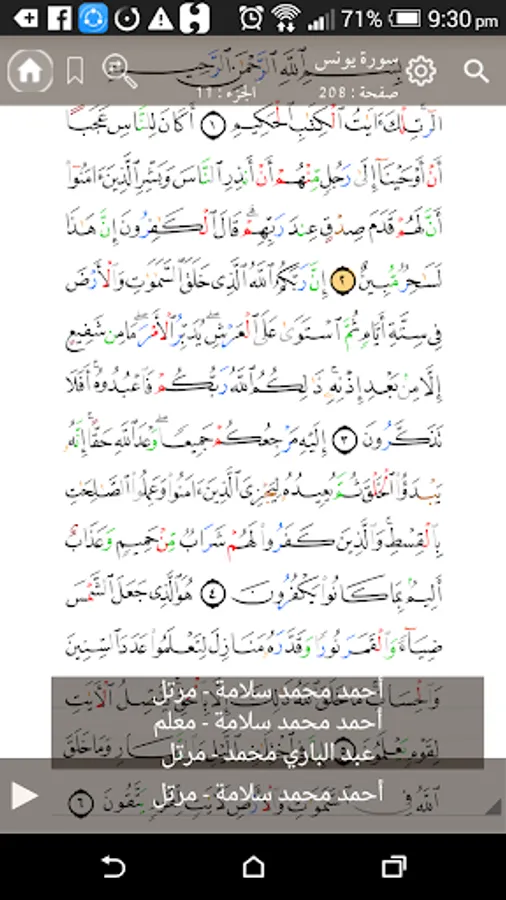 71% 9:30 pm
بِسْمِ ٱللَّهِ ٱلرَّحْمَٰنِ ٱلرَّحِيمِ
سورة يونس
صفحة : 208 الجزء : 11
الٓر تِلْكَ ءَايَٰتُ ٱلْكِتَٰبِ ٱلْحَكِيمِ ١ أَكَانَ لِلنَّاسِ عَجَبًا
أَنْ أَوْحَيْنَآ إِلَىٰ رَجُلٍ مِّنْهُمْ أَنْ أَنذِرِ ٱلنَّاسَ وَبَشِّرِ ٱلَّذِينَ ءَامَنُوٓا۟
أَنَّ لَهُمْ قَدَمَ صِدْقٍ عِندَ رَبِّهِمْ ۗ قَالَ ٱلْكَٰفِرُونَ إِنَّ هَٰذَا
لَسَٰحِرٌ مُّبِينٌ ٢ إِنَّ رَبَّكُمُ ٱللَّهُ ٱلَّذِى خَلَقَ ٱلسَّمَٰوَٰتِ وَٱلْأَرْضَ
فِى سِتَّةِ أَيَّامٍ ثُمَّ ٱسْتَوَىٰ عَلَى ٱلْعَرْشِ ۖ يُدَبِّرُ ٱلْأَمْرَ ۖ مَا مِن شَفِيعٍ
إِلَّا مِنۢ بَعْدِ إِذْنِهِۦ ۚ ذَٰلِكُمُ ٱللَّهُ رَبُّكُمْ فَٱعْبُدُوهُ ۚ أَفَلَا
تَذَكَّرُونَ ٣ إِلَيْهِ مَرْجِعُكُمْ جَمِيعًا ۖ وَعْدَ ٱللَّهِ حَقًّا ۚ إِنَّهُۥ
يَبْدَؤُا۟ ٱلْخَلْقَ ثُمَّ يُعِيدُهُۥ لِيَجْزِىَ ٱلَّذِينَ ءَامَنُوا۟ وَعَمِلُوا۟ ٱلصَّٰلِحَٰتِ
بِٱلْقِسْطِ ۚ وَٱلَّذِينَ كَفَرُوا۟ لَهُمْ شَرَابٌ مِّنْ حَمِيمٍ وَعَذَابٌ
أَلِيمٌۢ بِمَا كَانُوا۟ يَكْفُرُونَ ٤ هُوَ ٱلَّذِى جَعَلَ ٱلشَّمْسَ
ضِيَآءً وَٱلْقَمَرَ نُورًا وَقَدَّرَهُۥ مَنَازِلَ لِتَعْلَمُوا۟ عَدَدَ ٱلسِّنِينَ
أحمد محمد سلامة - مرتل
أحمد محمد سلامة - معلم
عبد الباري محمد - مرتل
أحمد محمد سلامة - مرتل